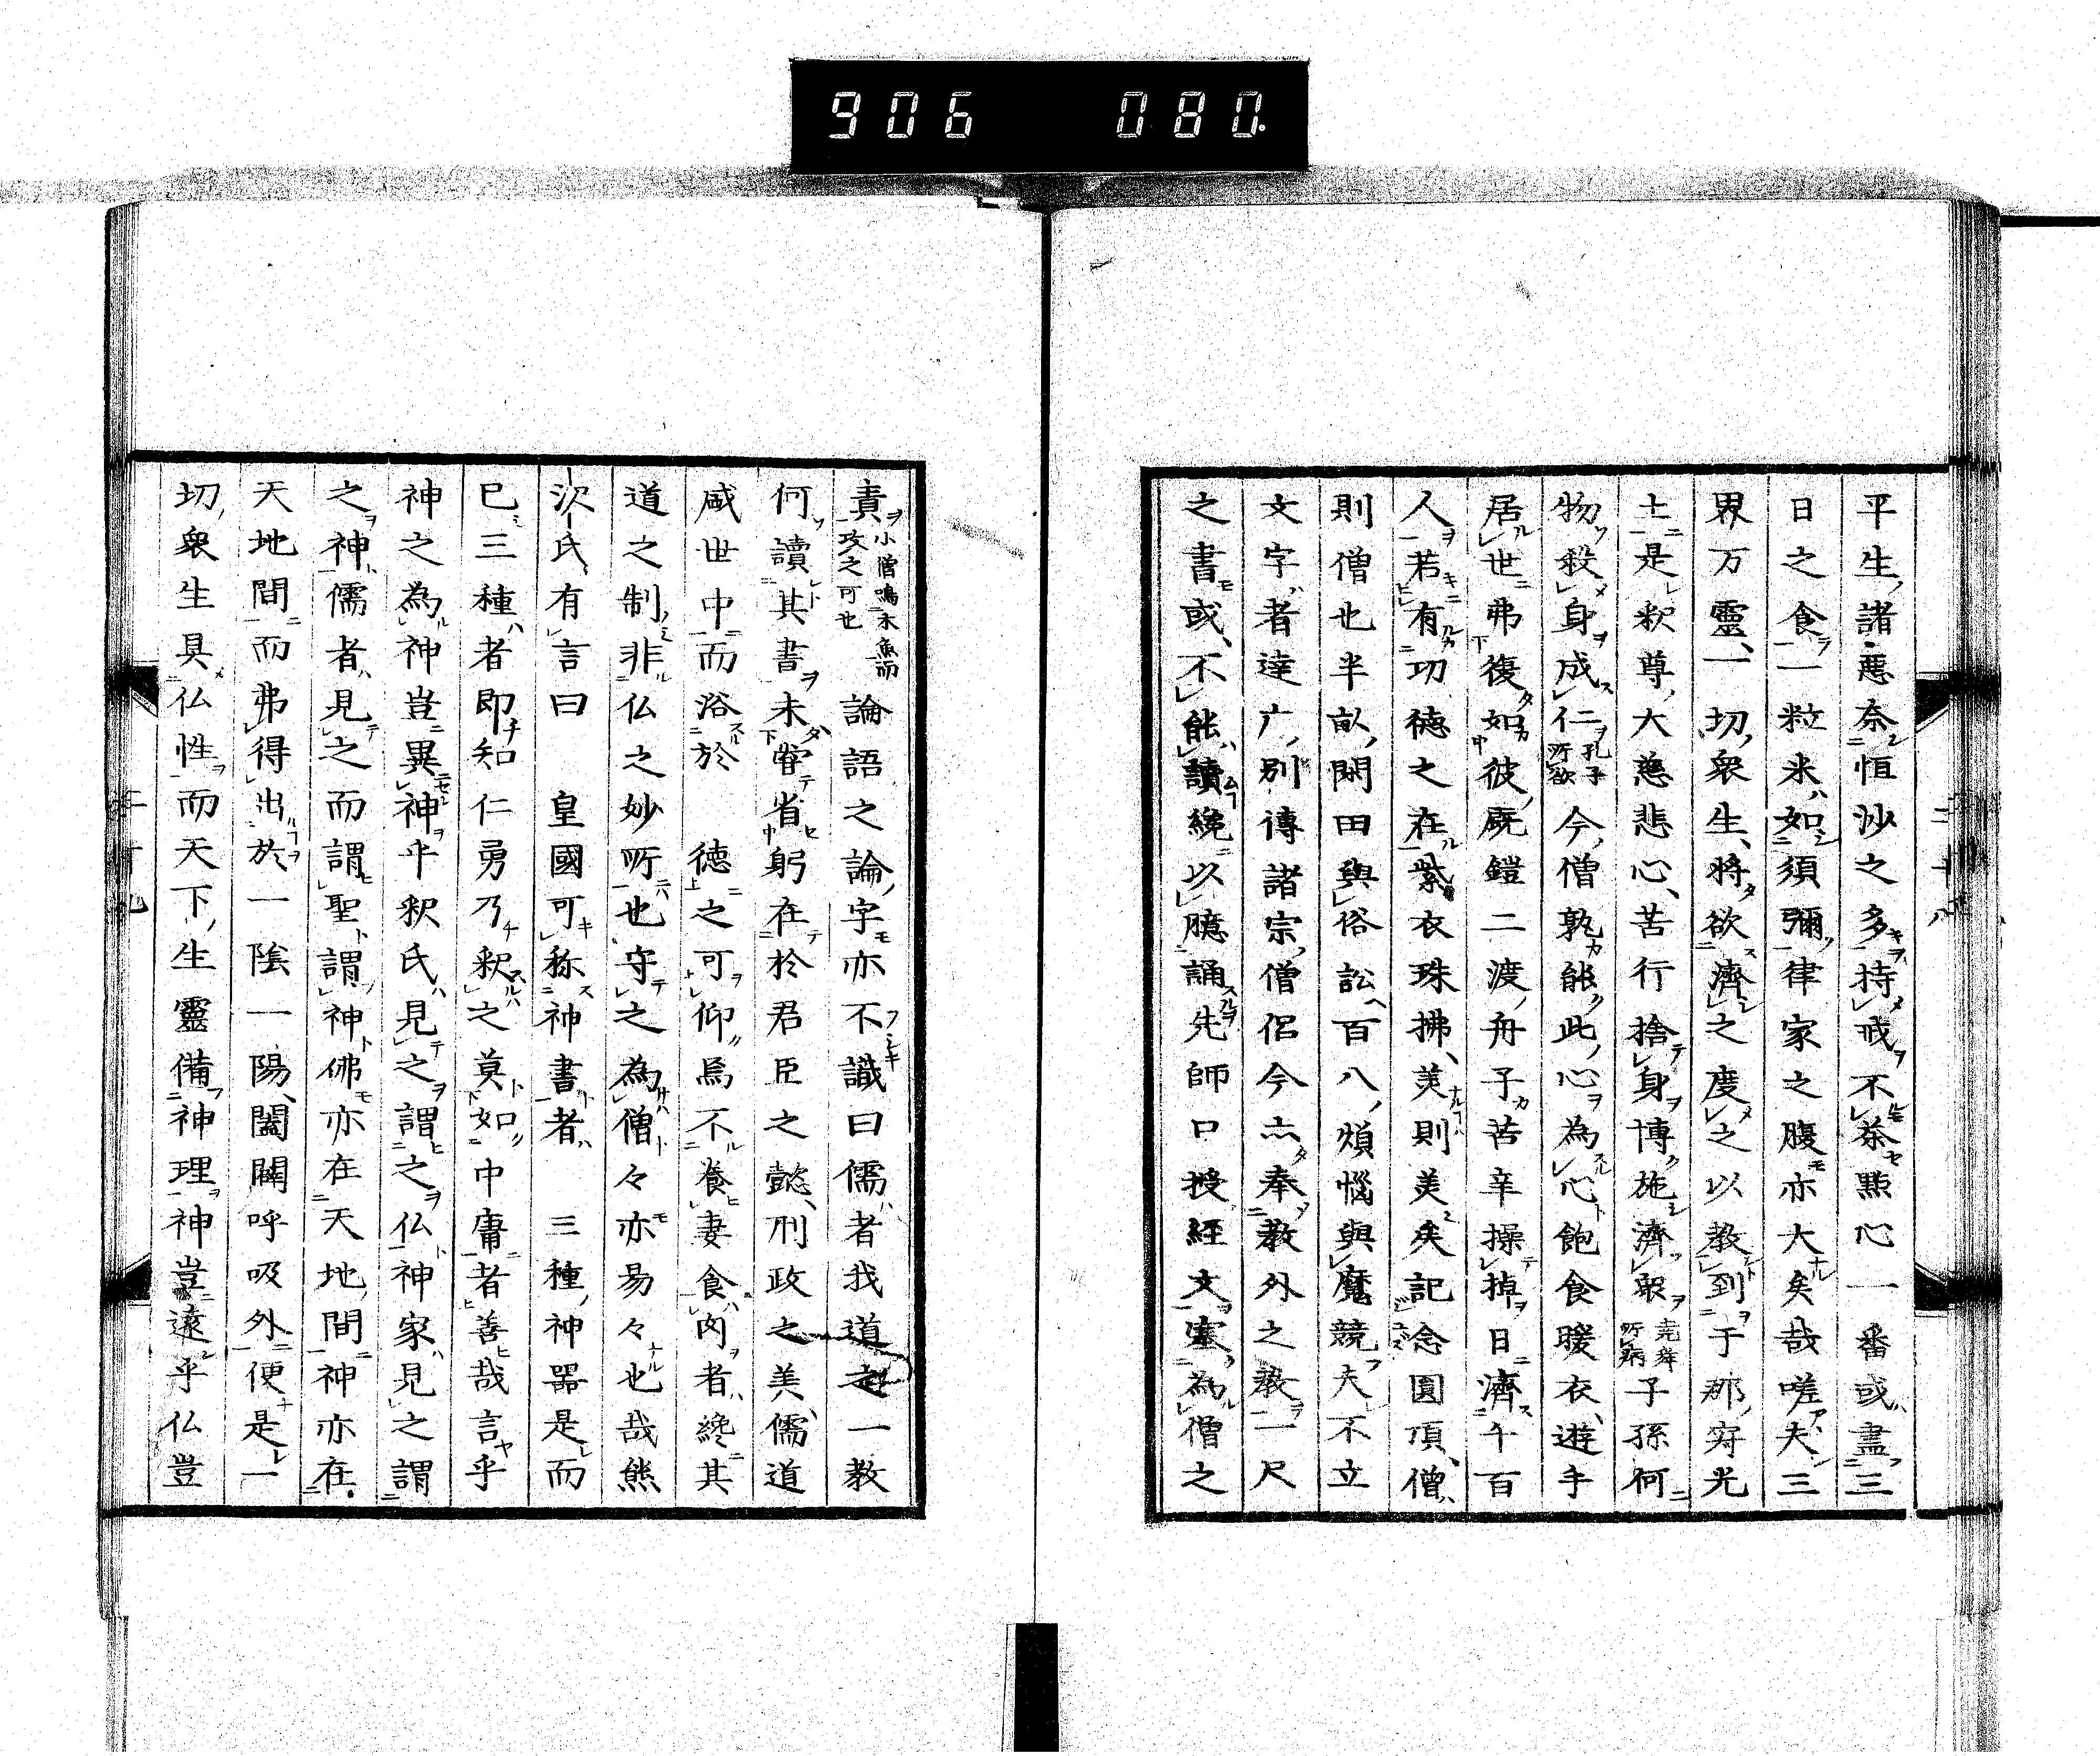 906 080.
平生諸惡奈恒沙之多持戒不茶點心一番或盡三
日之食一粒米如須彌律家之腹亦大矣哉嗟夫三
界万靈一切衆生將欲濟之度之以教到于那寂光
土是釈尊大慈悲心苦行捨身博施濟衆堯舜所病子孫何
物殺身成仁孔子所欲今僧孰能此心為心飽食暖衣遊手
居世弗復如彼厩鐙二渡舟子苦辛操掉日濟千百
人若有功德之在紫衣珠拂美則美矣記念圓頂僧
則僧也半畝閑田與俗訟百八煩惱與魔競夫不立
文字者達广別傳諸宗僧侶今亦奉教外之教一尺
之書或不能讀纔以臆誦先師口授經文塞為僧之
責小僧鳴木魚而攻之可也論語之論字亦不識曰儒者我道之一教
何讀其書未嘗省躬在於君臣之懿刑政之美儒道
咸世中而浴於 德之可仰焉不養妻食肉者纔其
道之制非仏之妙所也守之為僧々亦易々也哉熊
沢氏有言曰 皇國可称神書者 三種神器是而
已三種者即知仁勇乃釈之莫如中庸者善哉言乎
神之為神豈異神乎釈氏見之謂之仏神家見之謂
之神儒者見之而謂聖謂神佛亦在天地間神亦在
天地間而弗得出於一陰一陽闔闢呼吸外便是一
切衆生具仏性而天下生靈備神理神豈遠乎仏豈